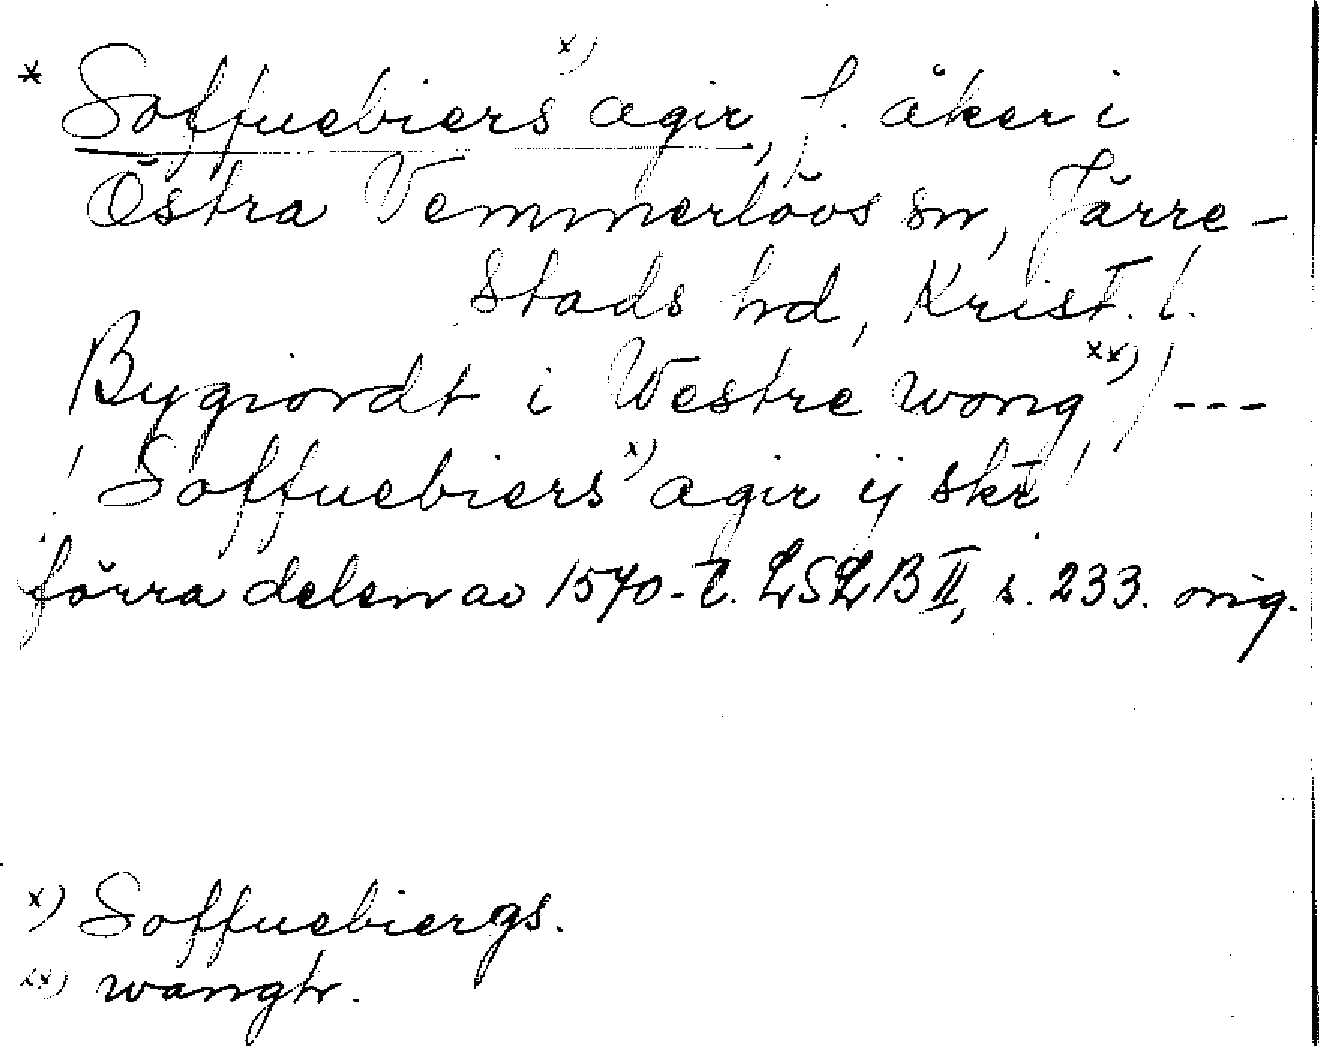 * Soffuebiers x) agir, f. åker i
Östra Vemmerlövs sn, Järre-
stads hd, Krist. l.
Bygiordt i Westre wong xx) / ---
/ Soffuebiers x) agir ij skr /
förra delen av 1570-t. LSLB II, s. 233. orig.
x) Soffuebiergs.
xx) wangh.